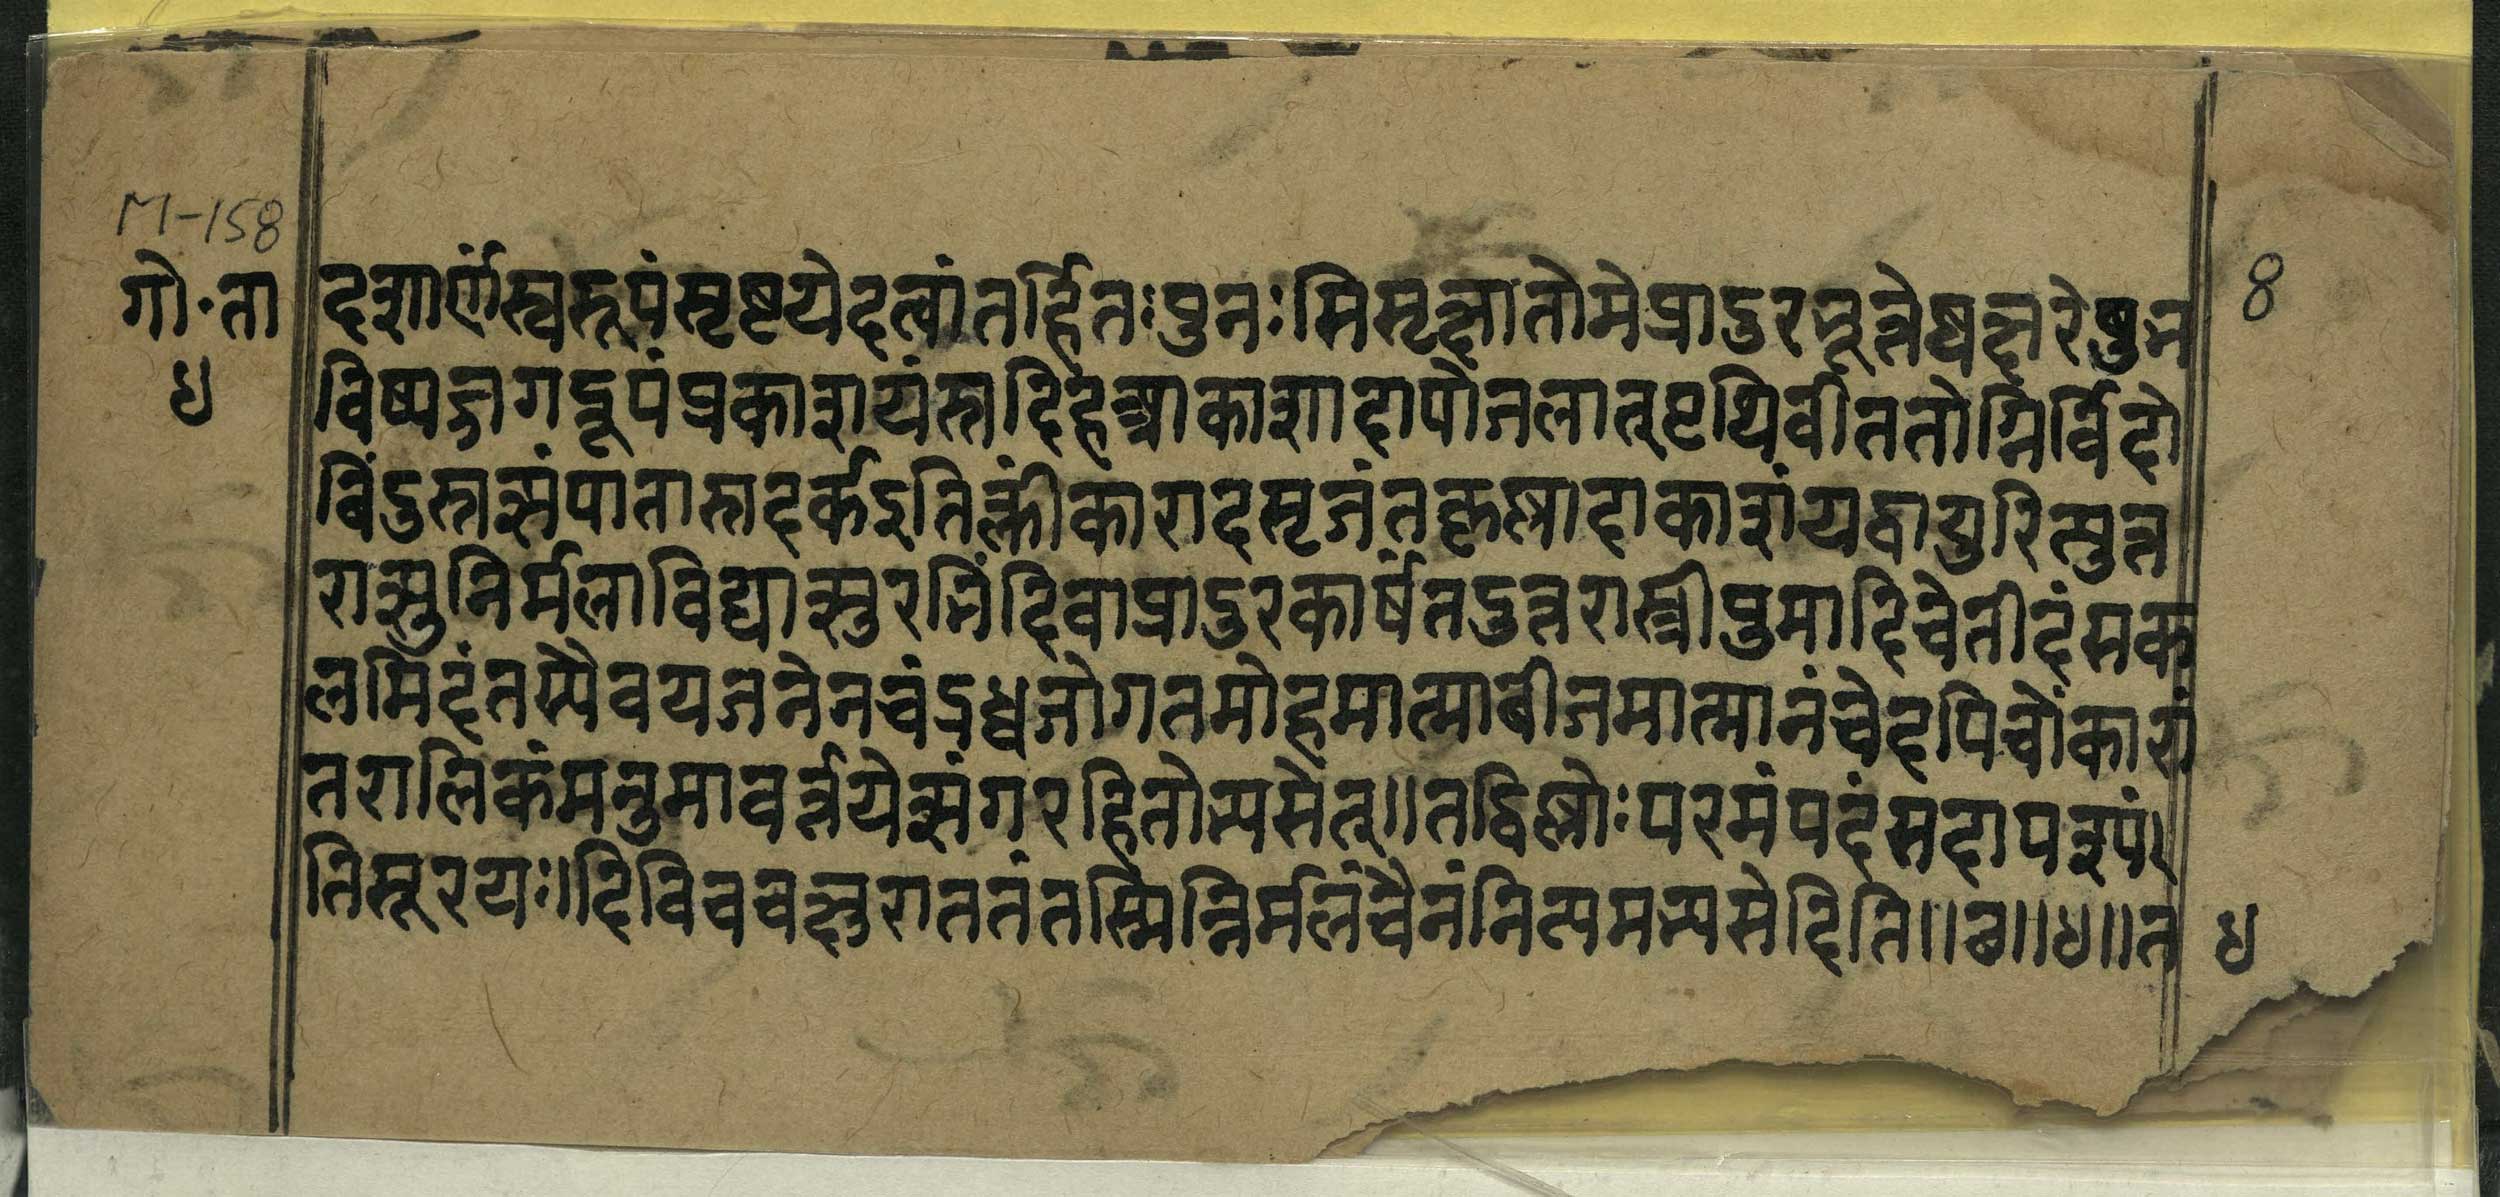 M-158
गो॰ता
४
8
दशार्णंस्वरूपंसृष्टयेदत्वांतर्हितःपुनःसिसृक्षातोमेप्रादुरभूत्तेष्वक्षरेषुभ
विष्यज्जगद्रूपंप्रकाशयंस्तादिहक्षाकाशादापोजलात्पृथिवीततोग्निर्विदो
बिंदुस्तत्संपातास्तदर्कइतिक्लींकारादसृजंतकृत्स्नादाकाशंयद्वायुरित्युत्त
रात्सुनिर्मलाविद्यात्सुरभिंदिवाप्रादुरकार्षंतदुत्तरात्स्त्रीपुमादिचेतीदंसक
लमिदंतस्यैवयजनेनचंद्रध्वजोगतमोहमात्माबीजमात्मानंवेदपिचोंकारां
तरालिकंमनुमावर्त्तयेत्संगरहितोभ्यसेत्॥तद्विष्णोःपरमंपदंसदापश्यं
तिसूरयः॥दिविवचक्षुराततंतस्मिन्निर्मलंचैनंनित्यमभ्यसेदिति॥छ॥४॥त
४